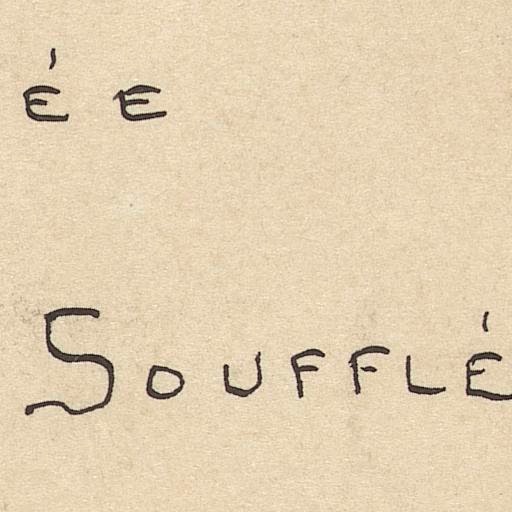 ÉE
SOUFFLÉ